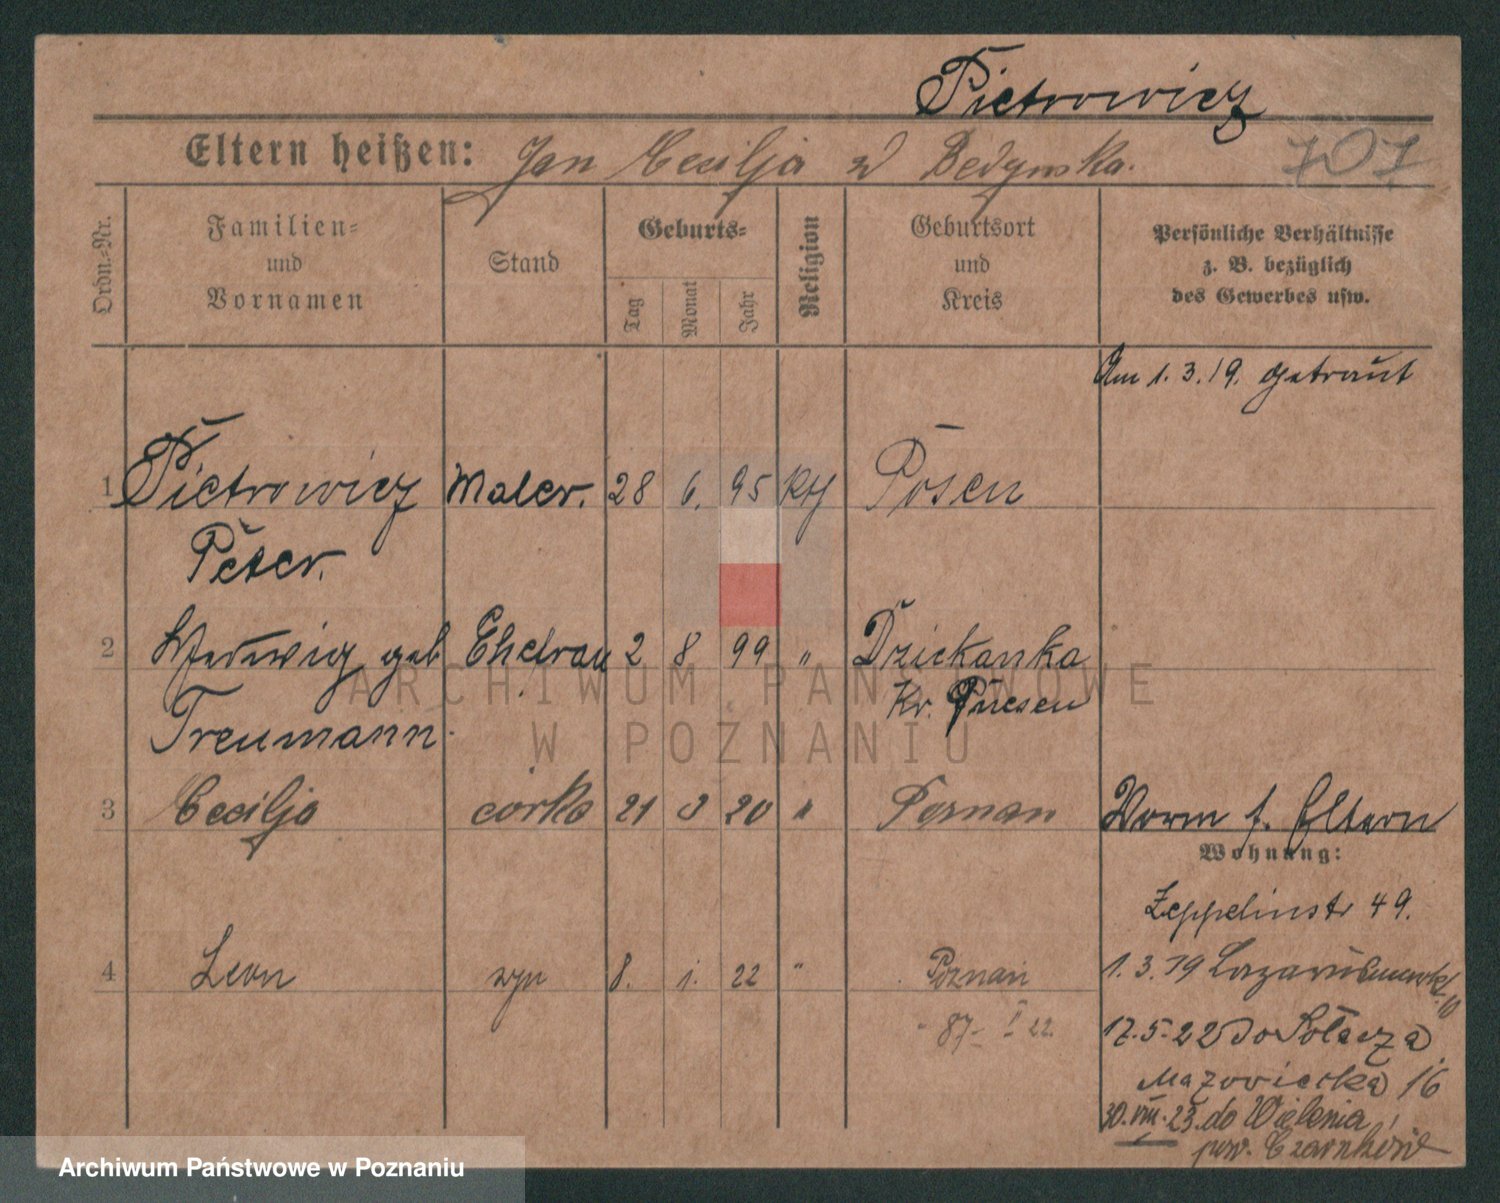 Pietrowicz
Eltern heißen: Jan Cecilja z d Bedynska.
707
Ordn.-Nr.
Familien-
und
Vornamen
Stand
Geburts-
Tag
Monat
Jahr
Religion
Geburtsort
und
Kreis
Persönliche Verhältnisse
z. B. bezüglich
des Gewerbes usw.
Am 1.3.19. getraut
1 Pietrowicz Maler. 28 6. 95 kth Posen
Peter.
2 Hedwig geb Ehefrau 2 8 99 " Dziekanka
Treumann. Kr. Gnesen
3 Cecilja córka 21 20 " Poznan Vorm f. Eltern
Wohnung:
Zeppelinstr 49.
4 Leon syn 8. 1. 22 " Poznań 1.3.19 Lazarusmarkt 10
87- I 22
17.5.22 do Sołacza
Mazowiecka 16
30.VIII.23. do Wielenia
pow. Czarnków
ARCHIWUM PAŃSTWOWE
W POZNANIU
Archiwum Państwowe w Poznaniu